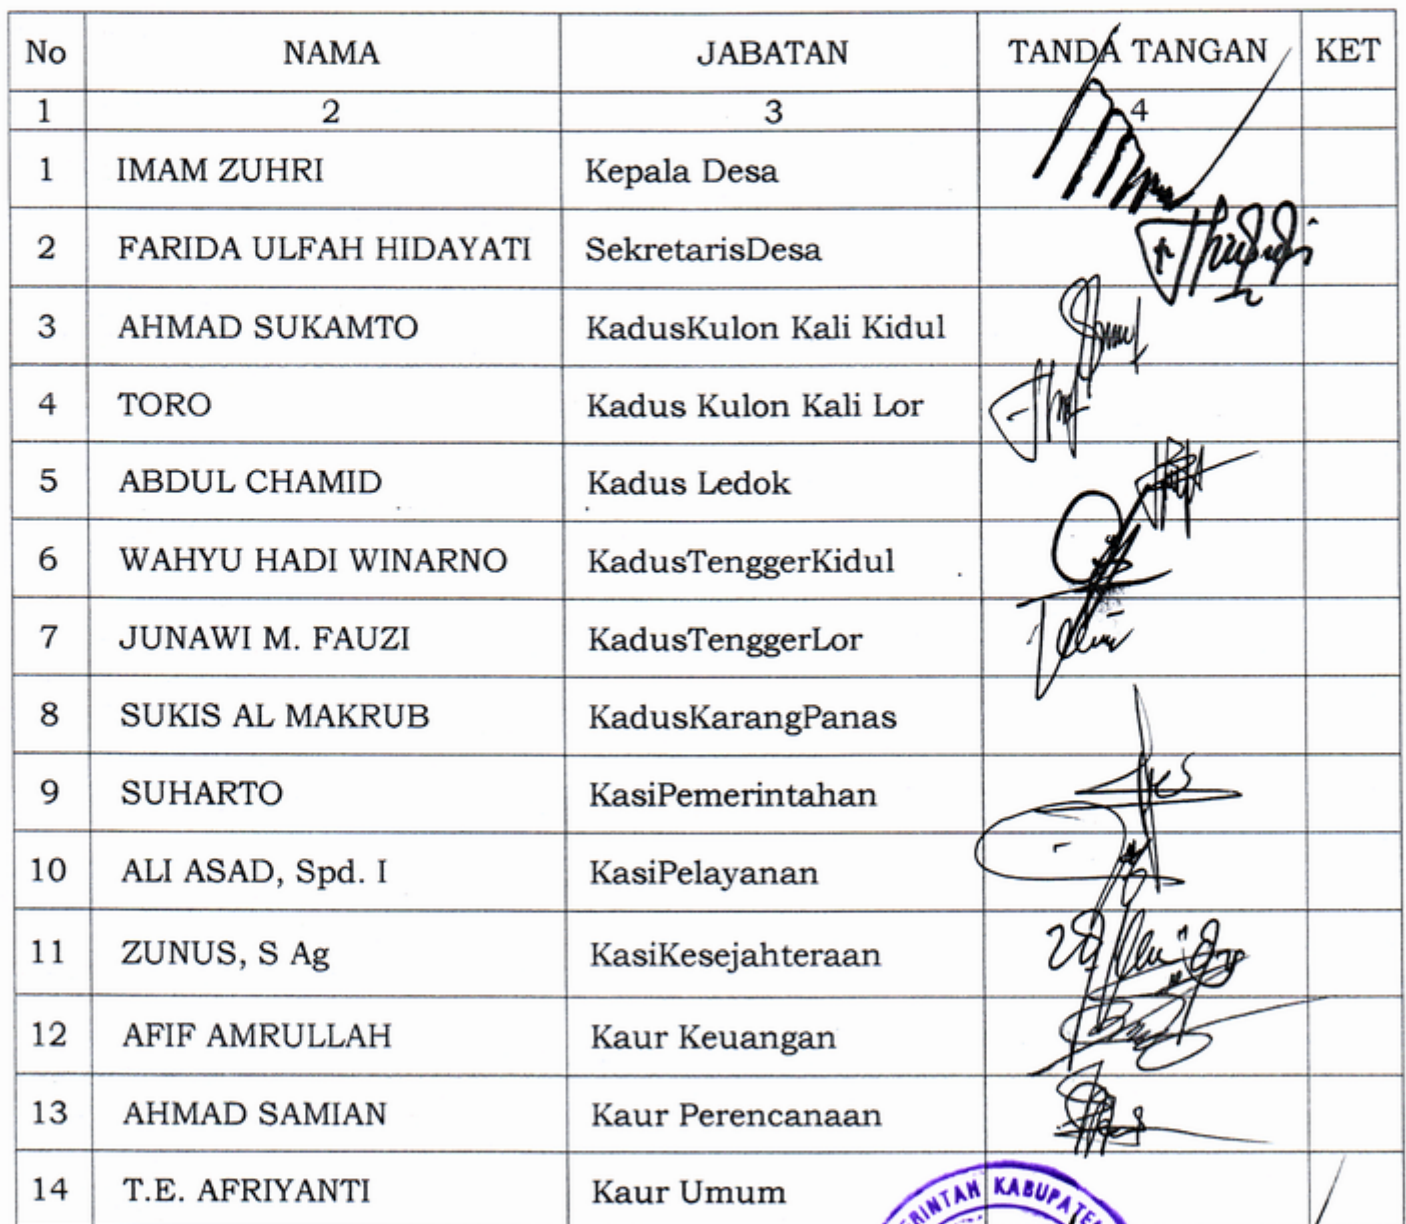 No NAMA JABATAN TANDA TANGAN KET
1 2 3 4
1 IMAM ZUHRI Kepala Desa
2 FARIDA ULFAH HIDAYATI SekretarisDesa
3 AHMAD SUKAMTO KadusKulon Kali Kidul
4 TORO Kadus Kulon Kali Lor
5 ABDUL CHAMID Kadus Ledok
6 WAHYU HADI WINARNO KadusTenggerKidul
7 JUNAWI M. FAUZI KadusTenggerLor
8 SUKIS AL MAKRUB KadusKarangPanas
9 SUHARTO KasiPemerintahan
10 ALI ASAD, Spd. I KasiPelayanan
11 ZUNUS, S Ag KasiKesejahteraan
12 AFIF AMRULLAH Kaur Keuangan
13 AHMAD SAMIAN Kaur Perencanaan
14 T.E. AFRIYANTI Kaur Umum